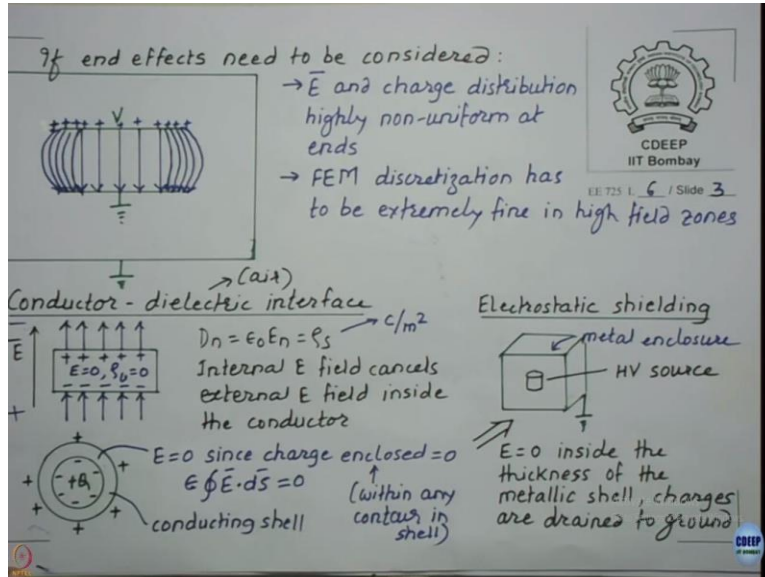 If end effects need to be considered:
→ E̅ and charge distribution
highly non-uniform at
ends
→ FEM discretization has
to be extremely fine in high field zones
V
CDEEP
IIT Bombay
EE 725 L 6 / Slide 3
(air)
Conductor - dielectric interface
E̅
E=0, ρv=0
Dn = ϵ0En = ρs
C/m²
Internal E field cancels
external E field inside
the conductor
+Q
E=0 since charge enclosed=0
ϵ∮E̅.ds̅ = 0
(within any
contour in
shell)
conducting shell
Electrostatic shielding
metal enclosure
HV source
E=0 inside the
thickness of the
metallic shell, charges
are drained to ground
NPTEL
CDEEP
IIT BOMBAY